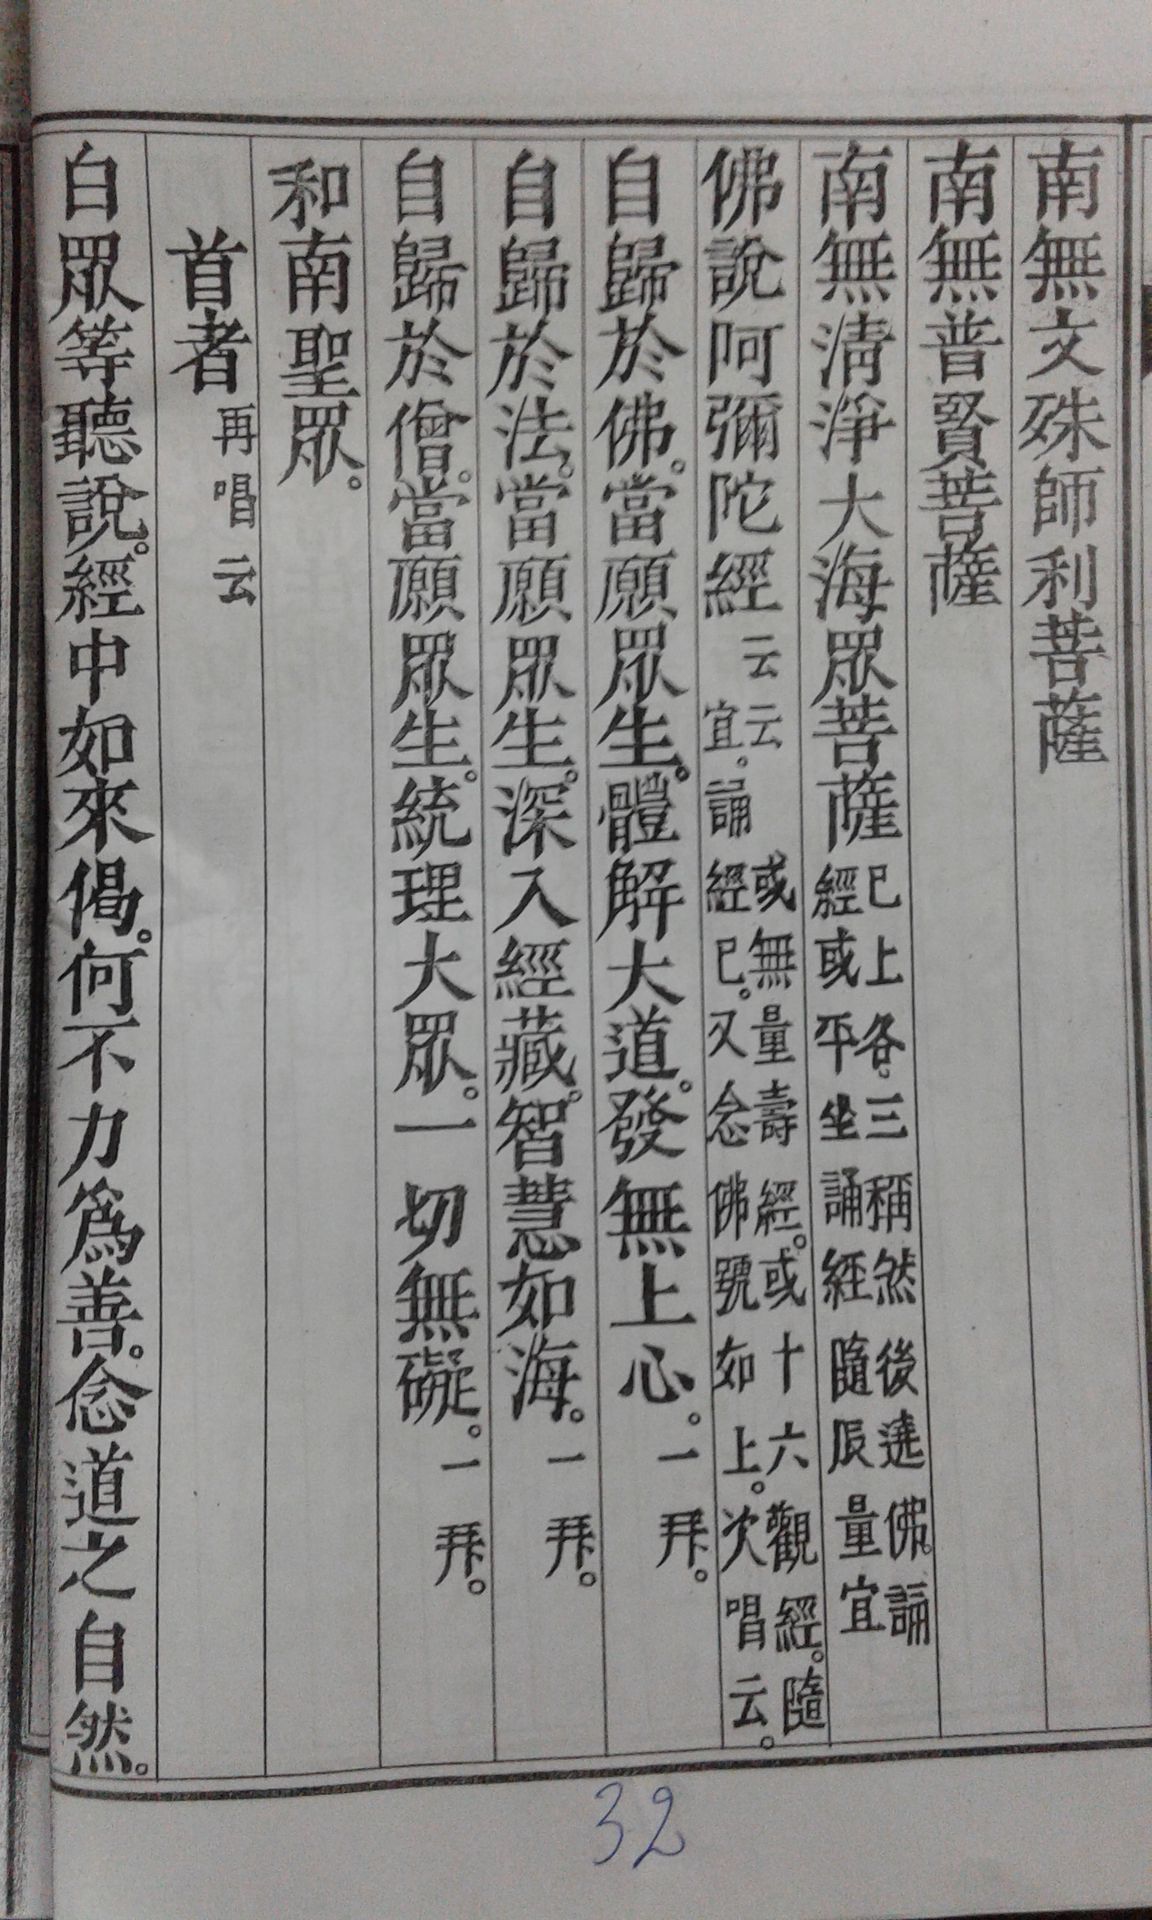 南無文殊師利菩薩
南無普賢菩薩
南無清淨大海眾菩薩 已上各。三稱然後遶佛。誦經或平坐誦經隨辰量宜
佛說阿彌陀經 云云 或無量壽經。或十六觀經。隨宜。誦經已。又念佛號如上。次唱云。
自歸於佛。當願眾生。體解大道。發無上心。一拜。
自歸於法。當願眾生。深入經藏。智慧如海。一拜。
自歸於僧。當願眾生。統理大眾。一切無礙。一拜。
和南聖眾。
首者 再唱云
白眾等聽說。經中如來偈。何不力為善。念道之自然。
32